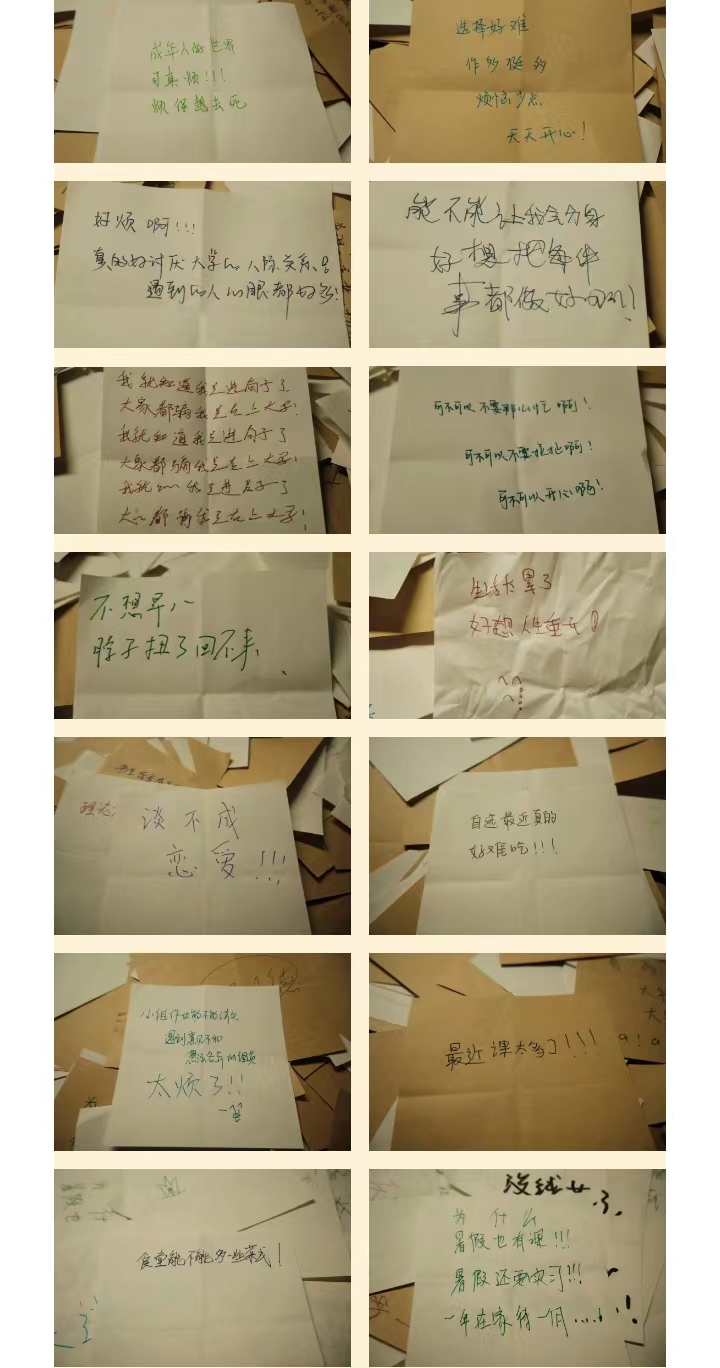 成年人的世界
可真烦!!!
烦得想去死
选择好难
作业挺多
烦恼少点
天天开心!
好烦啊!!!
真的好讨厌大学的人际关系!
遇到的人心眼都好多!
能不能让我会分身
好想把每件
事都做好
我就知道我是进局子了
大家都骗我是在上大学!
我就知道我是进局子了
大家都骗我是在上大学!
我就知道我是进局子了
大家都骗我是在上大学!
可不可以不要那么忙啊!
可不可以不要尴尬啊!
可不可以开心啊!
不想早八
脖子扭了回不来
生活太累了
好想人生重开!
理论
谈不成
恋爱!!!
自选最近真的
好难吃!!!
小组作业能不能消失
遇到意见不和
想法各异的组员
太烦了!!
最近课太多了!!!
食堂能不能多一些菜式!
没钱
了
为什么
暑假也有课!!!
暑假还要实习!!!
一年在家待一个月......!